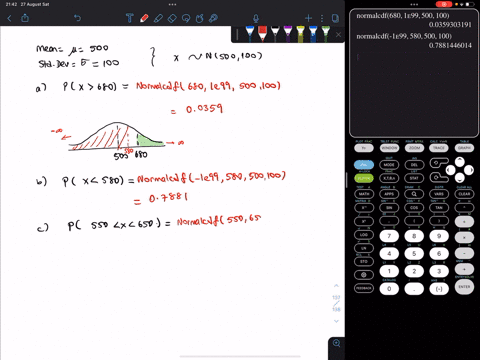 21:42 27 August Sat
Mean = μ = 500
Std. Dev = σ = 100
} x ~ N(500,100)
a) P(x > 680) = Normalcdf(680, 1e99, 500, 100)
= 0.0359
-∞
→ ∞
500 580 680
b) P(x < 580) = Normalcdf(-1e99, 580, 500, 100)
= 0.7881
c) P(550 < x < 650) = Normalcdf(550, 65
normalcdf(680, 1e99, 500, 100)
0.0359303191
normalcdf(-1e99, 580, 500, 100)
0.7881446014
WINDOW
ZOOM
TRACE
GRAPH
2ND
MODE
DEL
ALPHA
X,T,θ,n
STAT
MATH
APPS
PRGM
VARS
CLEAR
SIN
COS
TAN
^
x²
,
(
)
÷
LOG
7
8
9
×
LN
4
5
6
−
STO
1
2
3
+
0
.
(-)
ENTER